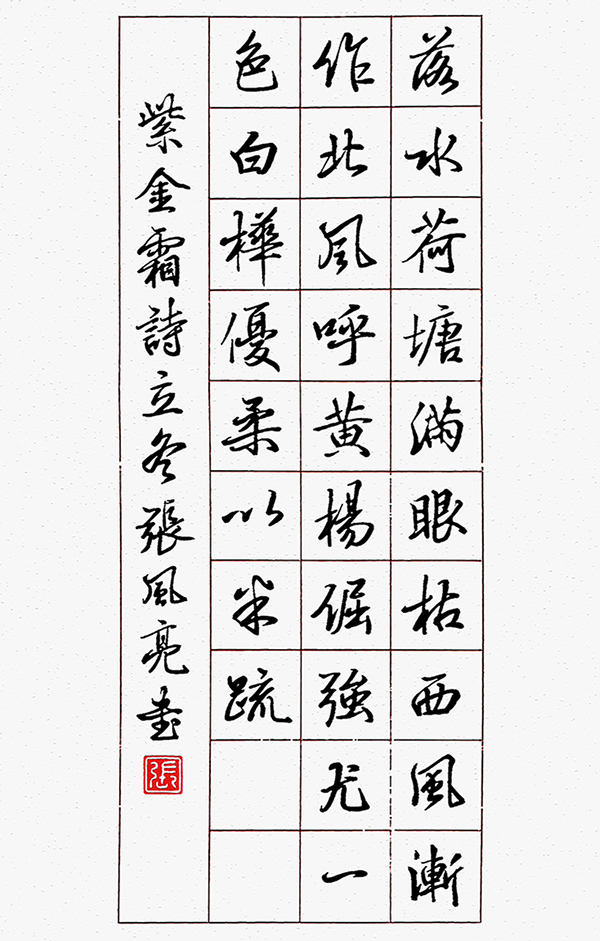 落水荷塘滿眼枯西風漸
作北風呼黄楊倔強尤一
色白樺優柔以半疏
紫金霜詩立冬張風亮書
張